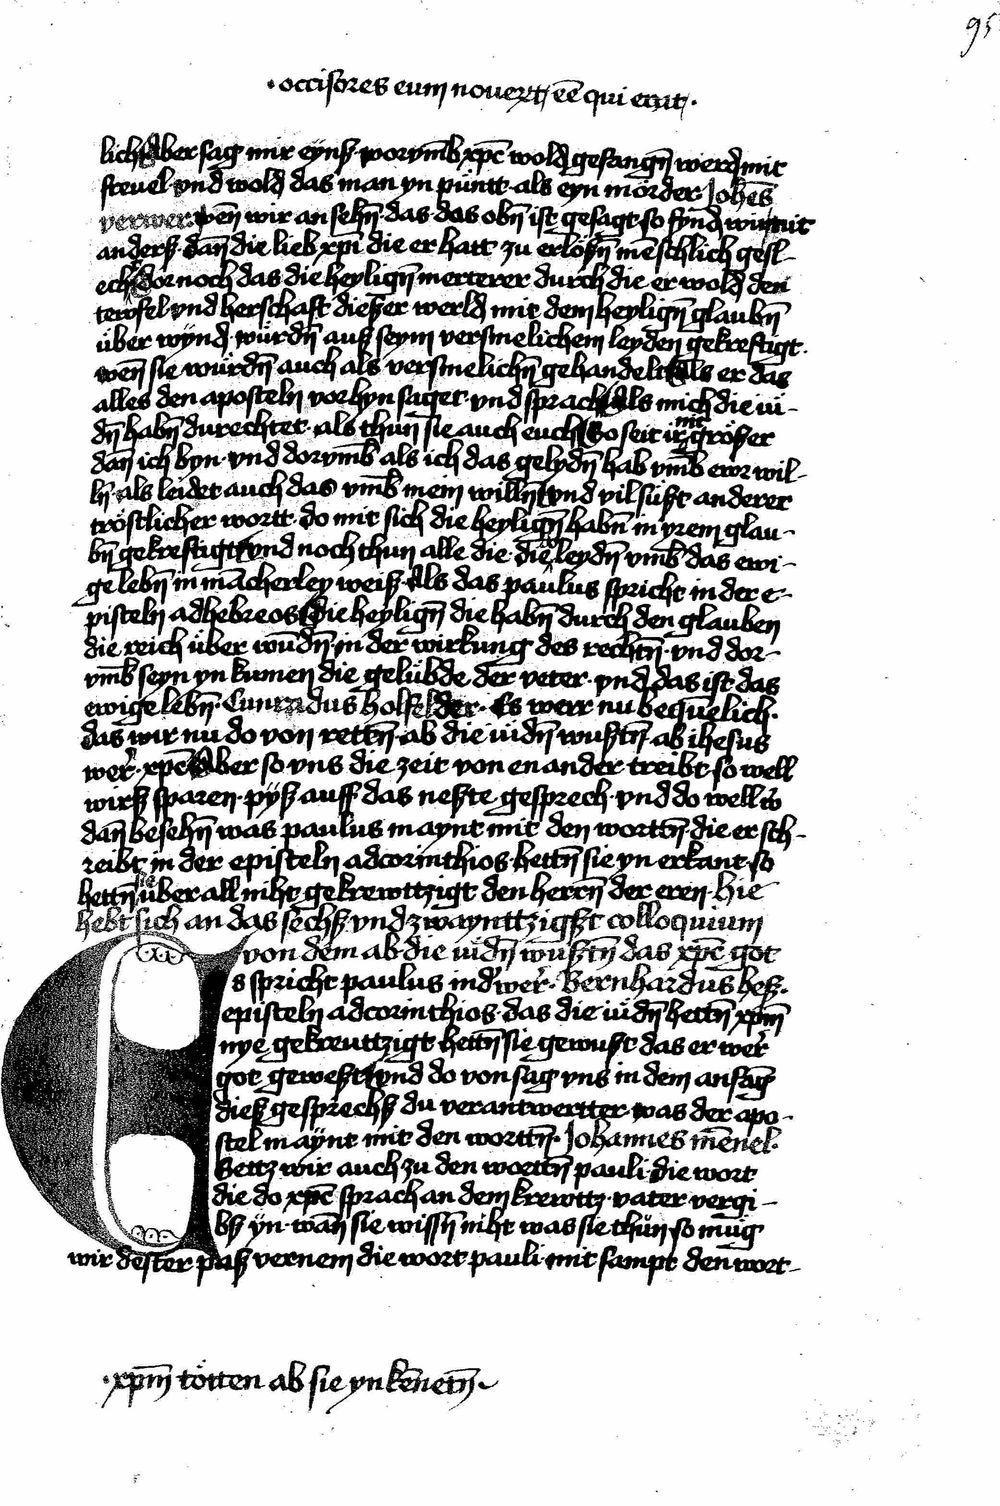 95
· occisores eum nouert̄ eē qui erat ·
lich Aber sag mir eynß · worvmb xp̄c wold gefangn̄ werd mit
freuel · vnd wold das man yn püntt · als eyn mörder Joh̄es
verwer · wen̄ wir an sehn̄ · das das obn̄ ist gesagt · so synd wir nit
anderß · dan̄ die lieb xp̄i die er hatt zu erlösn̄ mēschlich gesl-
echt dor noch das die heylign̄ merterer durch die er wold den
tewfel vnd herschaft dießer werld mit dem heylign̄ glaubn̄
über wynd · würdn̄ auß seym versmelichem leyden gekreftigt ·
wen̄ sie würdn̄ auch als versmelichn̄ gehandelt Als er das
alles den aposteln vorhyn saget · vnd sprach Als mich die iü-
dn̄ habn̄ durechtet · als thun sie auch euch So seit ir nit größer
dan̄ ich byn · vnd dorvmb als ich das gelydn̄ hab vmb ewr wil-
ln̄ · als leidet auch das vmb mein willn̄ vnd vil süßt anderer
tröstlicher wortt · do mit sich die heylign̄ habn̄ in yrem glau-
bn̄ gekreftigt vnd noch thun alle die · die do leydn̄ vmb das ewi-
ge lebn̄ in mācherley weiß · Als das paulus spricht in der e-
pisteln adhebreos Die heylign̄ die habn̄ durch den glauben
die reich über wūdn̄ · in der wirkung des rechtn̄ · vnd dor-
vmb seyn yn kumen die gelübde der veter · vnd das ist das
ewige lebn̄ · Cunradus holfelder · Es werr nu bequelich ·
das wir nu do von rettn̄ · ab die iüdn̄ wustn̄ · ab ihesus
wer̄ · xp̄c Aber so vns die zeit von en ander treibt · so well
wirß sparen · pyß auff das neßte gesprech · vnd do well w̄
dan̄ besehn̄ was paulus maynt mit den wortn̄ · die er sch-
reibt in der episteln adcorinthios · hettn̄ sie yn erkant · so
hettn̄ sie über all niht gekrewttzigt den herrn̄ der eren · Hie
hebt sich an das sechß vnd zwaynttzigßt colloquium
von dem ab die iüdn̄ wußtn̄ das xp̄c got
Es spricht paulus in d̄ wer̄ · Bernhardus heß ·
episteln adcorinthios · das die iüdn̄ hettn̄ xp̄m
nye gekreuttzigt hettn̄ sie gewust das er wer̄
got geweßt vnd do von sag vns in dem anfāg
dieß gesprechß du verantwertter · was der apo-
stel maynt mit den wortn̄ · Johannes mēnel ·
Settz wir auch zu den wortn̄ pauli die wort
die do xp̄c sprach an dem krewttz · vater vergi-
bß yn · wan̄ sie wissn̄ niht was sie thün so müg
wir dester paß vernem die wort pauli · mit sampt den wort-
· xp̄m tötten ab sie yn kēnetn̄ ·